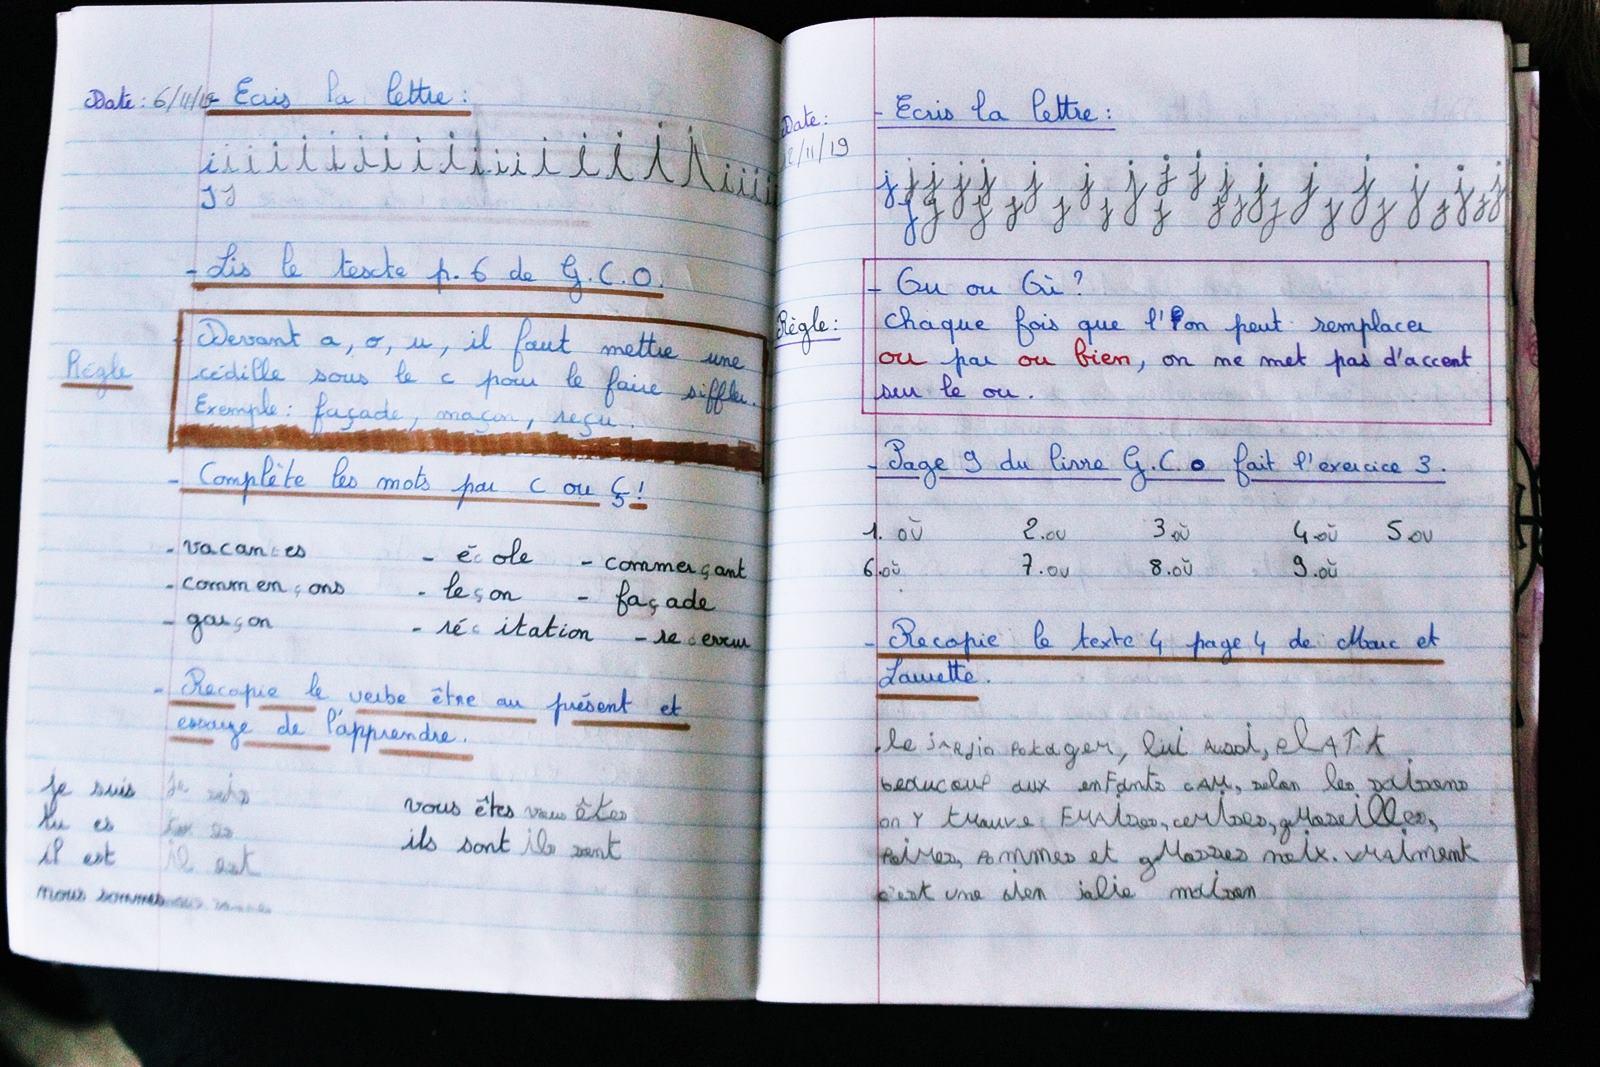 Date: 6/11/19 - Ecris la lettre:
i i i i i i i i i i i i i i i i i i i i i i
J J
- Lis le texte p. 6 de G.C.O.
Règle
Devant a, o, u, il faut mettre une
cédille sous le c pour le faire siffler.
Exemple: façade, maçon, reçu.
- Complète les mots par c ou ç!
- vacances - école - commerçant
- commençons - leçon - façade
- garçon - récitation - receveur
- Recopie le verbe être au présent et
essaye de l'apprendre.
je suis je suis vous êtes vous êtes
tu es tu es ils sont ils sont
il est il est
nous sommes nous sommes
Date: 12/11/19
- Ecris la lettre:
j j j j j j j j j j j j j j j j j
j j j j j j j j j j j j j j
Règle:
- Ou ou Où?
chaque fois que l'on peut remplacer
ou par ou bien, on ne met pas d'accent
sur le ou.
- Page 9 du livre G.C.O fait l'exercice 3.
1. où 2. ou 3. où 4. où 5. ou
6. où 7. ou 8. où 9. où
- Recopie le texte 4 page 4 de Marc et
Laurette.
le potager, lui aussi, plaît
beaucoup aux enfants car, selon les saisons
on y trouve fraises, cerises, groseilles,
poires, pommes et grosses noix. vraiment
c'est une bien jolie maison